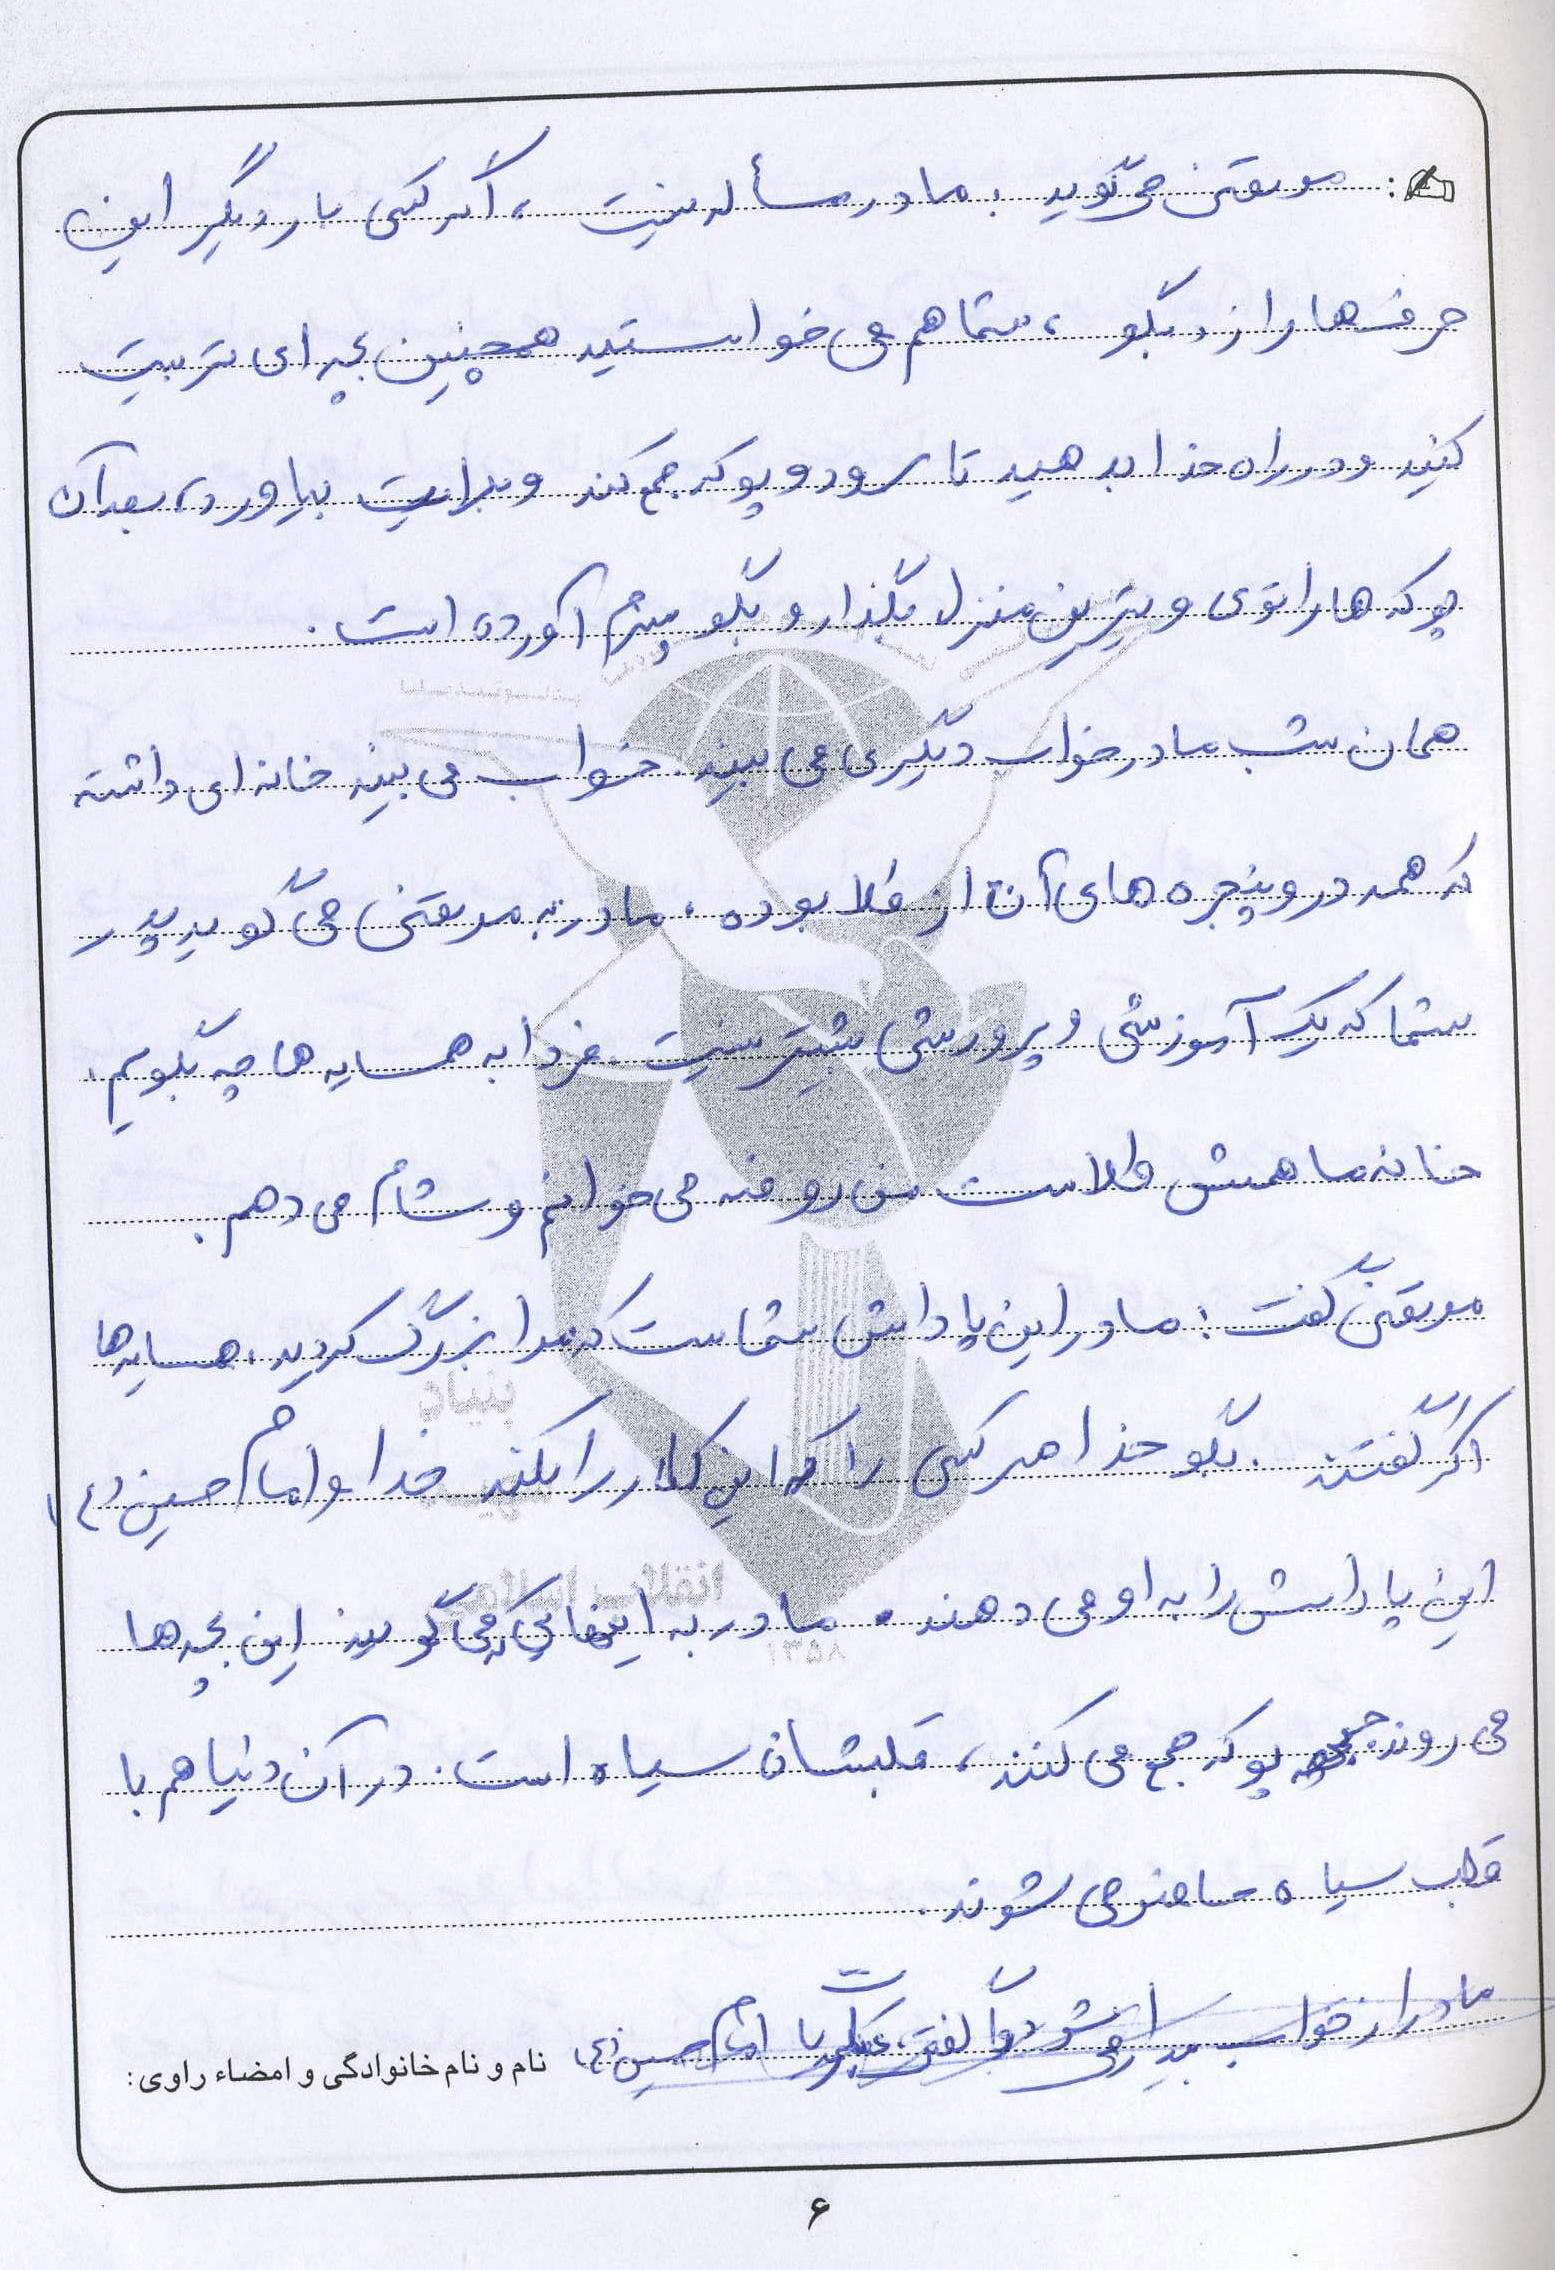 موقتی می‌گوید: مادر مسأله نیست، اگر کسی بار دیگر این
حرفها را زد بگو، شما هم می خواستید همچنین بچه ای تربیت
کنید و در راه خدا بدهید تا برود و پوکه جمع کند و برایت بیاورد، بعد آن
پوکه ها را توی ویترین منزل بگذار و بگو پسرم آورده است.
همان شب مادر خواب دیگری می بیند. خواب می بیند خانه ای داشته
که همه در و پنجره های آن از طلا بوده. مادر به موقتی می گوید پدر
شما که یک آموزشی و پرورشی بیشتر نیست. فردا به همسایه ها چه بگویم.
خانه ما همش طلاست من روضه می خوانم و شام می دهم.
موقتی گفت: مادر این پاداش شماست که مرا بزرگ کردید. همسایه ها
اگر گفتند. بگو خدا هر کسی را که این کار را بکند خدا و امام حسین (ع)
این پاداش را به او می دهند. مادر به اینهایی که می گویند این بچه ها
می روند جبهه پوکه جمع می کنند، قلبشان سیاه است. در آن دنیا هم با
قلب سیاه حاضر می شوند.
مادر از خواب بیدار می شود و با امام حسین (ع)
نام و نام خانوادگی و امضاء راوی:
بنیاد
شهید
انقلاب اسلامی
۱۳۵۸
۶